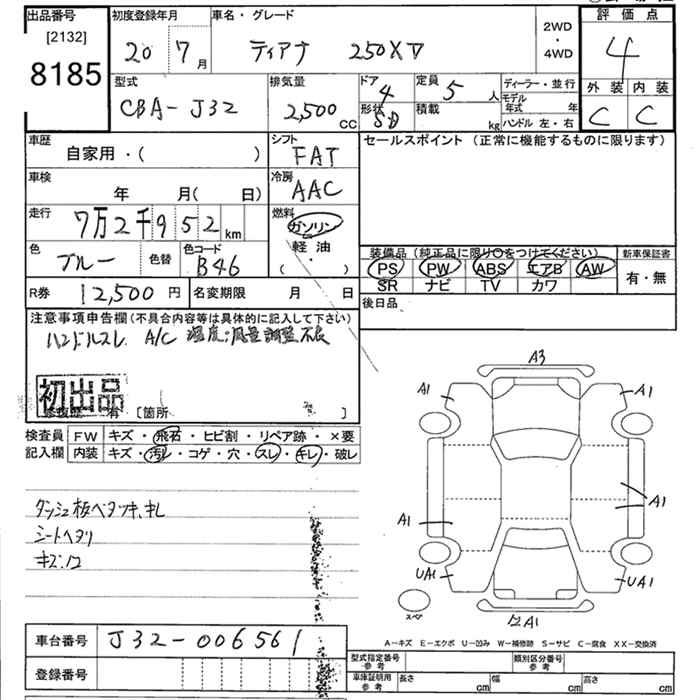 出品番号
[2132]
8185
初度登録年月
20 7月
車名・グレード
ティアナ 250XV
2WD
・
4WD
評価点
4
型式
CBA-J32
排気量
2,500 cc
ドア
4
形状
SD
定員
5人
積載
kg
ディーラー・並行
モデル年式 年
ハンドル 左・右
外装 内装
C C
車歴
自家用・( )
シフト
FAT
セールスポイント (正常に機能するものに限ります)
車検
年 月( 日)
冷房
AAC
走行
7万2千952km
燃料
ガソリン
軽油
・
( )
色
ブルー
色替
色コード
B46
装備品 (純正品に限り○をつけてください)
新車保証書
PS PW ABS エアB AW
SR ナビ TV カワ
有・無
R券 12,500円
名変期限 月 日
後日品
注意事項申告欄(不具合内容等は具体的に記入して下さい)
ハンドルスレ A/C 温度;風量調整不良
初出品
修復歴 有 [箇所 ]
検査員記入欄
FW キズ・飛石・ヒビ割・リペア跡・×要
内装 キズ・汚レ・コゲ・穴・スレ・キレ・破レ
ダッシュ板ベタツキ、キレ
シートヘタリ
A3
A1
A1
A1
A1
UA1
UA1
スペア
A1
A−キズ E−エクボ U−凹み W−補修跡 S−サビ C−腐食 XX−交換済
車台番号
J32-006561
登録番号
型式指定番号
参考
類別区分番号
参考
車庫証明用
参考
長さ cm
幅 cm
高さ cm